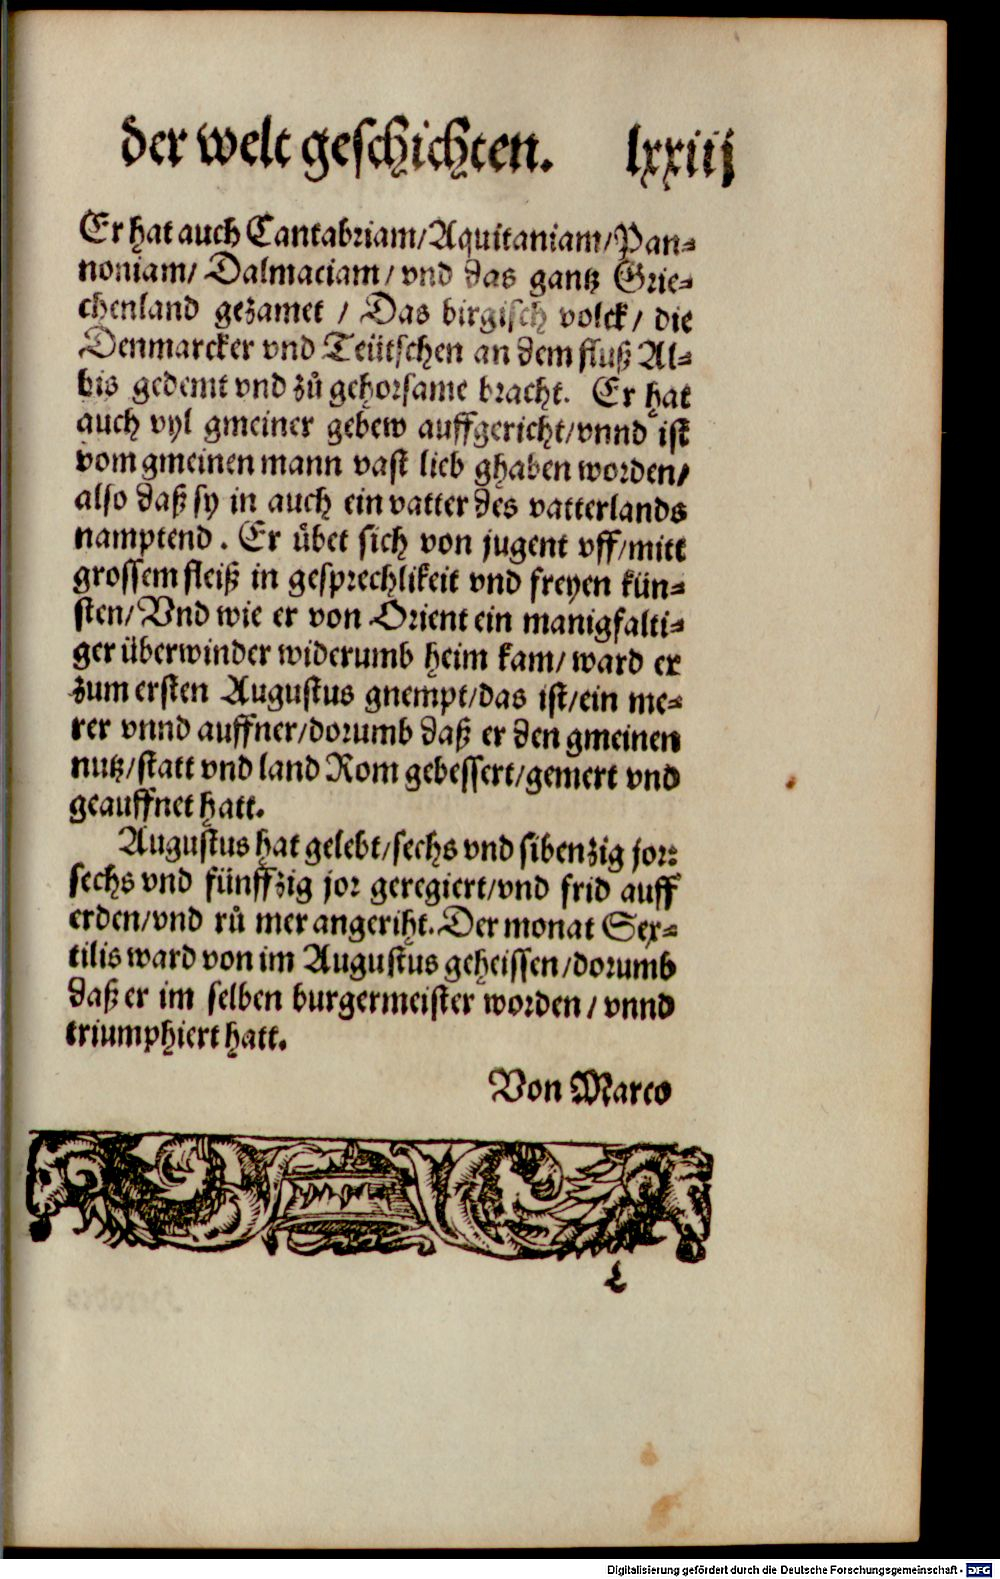 der welt geschichten. lxxiij
Er hat auch Cantabriam/Aquitaniam/Pan⸗
noniam/ Dalmaciam/ vnd das gantz Grie⸗
chenland gezamet / Das birgisch volck/ die
Denmarcker vnd Teütschen an dem fluß Al⸗
bis gedemt vnd zů gehorsame bracht. Er hat
auch vyl gmeiner gebew auffgericht/vnnd ist
vom gmeinen mann vast lieb ghaben worden/
also daß sy in auch ein vatter des vatterlands
namptend. Er übet sich von jugent vff/mitt
grossem fleiß in gesprechlikeit vnd freyen kün⸗
sten/Vnd wie er von Orient ein manigfalti⸗
ger überwinder widerumb heim kam/ward er
zum ersten Augustus gnempt/das ist/ein me⸗
rer vnnd auffner/dorumb daß er den gmeinen
nutz/statt vnd land Rom gebessert/gemert vnd
geauffnet hatt.
Augustus hat gelebt/sechs vnd sibenzig jor:
sechs vnd fünffzig jor geregiert/vnd frid auff
erden/vnd rů mer angeriht. Der monat Sex⸗
tilis ward von im Augustus geheissen/dorumb
daß er im selben burgermeister worden/ vnnd
triumphiert hatt.
Von Marco
L
Digitalisierung gefördert durch die Deutsche Forschungsgemeinschaft - DFG